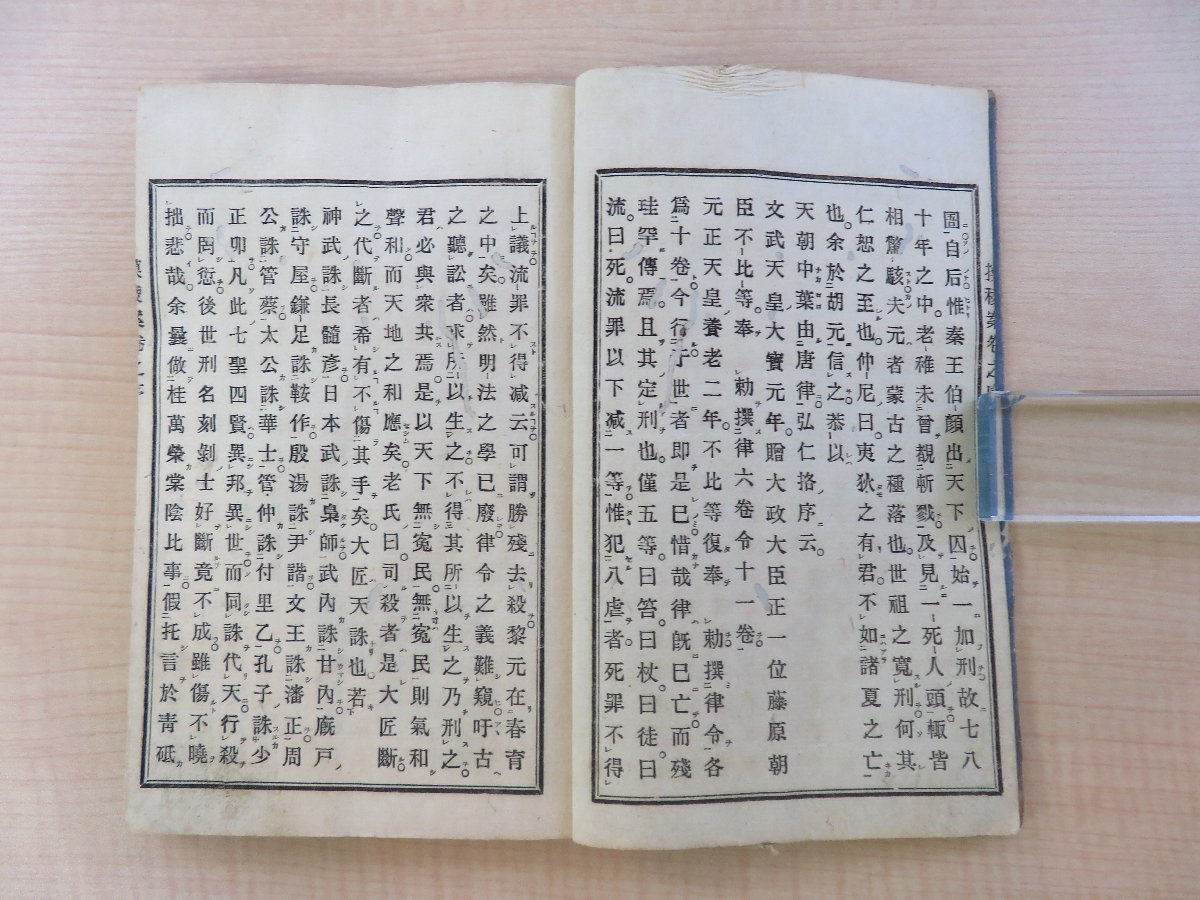 圄自后惟秦王伯顔出天下囚始一加刑故七八
十年之中老稚未曾覩斬戮及見一死人頭輙皆
相驚駭夫元者蒙古之種落也世祖之寬刑何其
仁恕之至也仲尼曰夷狄之有君不如諸夏之亡
也余於胡元信之恭以
天朝中葉由唐律弘仁挌序云
文武天皇大寶元年贈大政大臣正一位藤原朝
臣不比等奉　勅撰律六卷令十一卷
元正天皇養老二年不比等復奉　勅撰律令各
爲十卷今行于世者即是已惜哉律旣已亡而殘
珪罕傳焉且其定刑也僅五等曰笞曰杖曰徒曰
流曰死流罪以下減一等惟犯八虐者死罪不得
上議流罪不得减云可謂勝殘去殺黎元在春育
之中矣雖然明法之學已廢律令之義難窺吁古
之聽訟者求所以生之不得其所以生之乃刑之
君必與衆共焉是以天下無寃民無寃民則氣和
聲和而天地之和應矣老氏曰司殺者是大匠斷
之代斷者希有不傷其手矣大匠天誅也若
神武誅長髓彥日本武誅梟師武內誅甘內廐戸
誅守屋鎌足誅鞍作殷湯誅尹諧文王誅潘正周
公誅管蔡太公誅華士管仲誅付里乙孔子誅少
正卯凡此七聖四賢異邦異世而同誅代天行殺
而罔愆後世刑名刻剝士好斷竟不成雖傷不曉
拙悲哉余曩倣桂萬榮棠陰比事假托言於靑砥